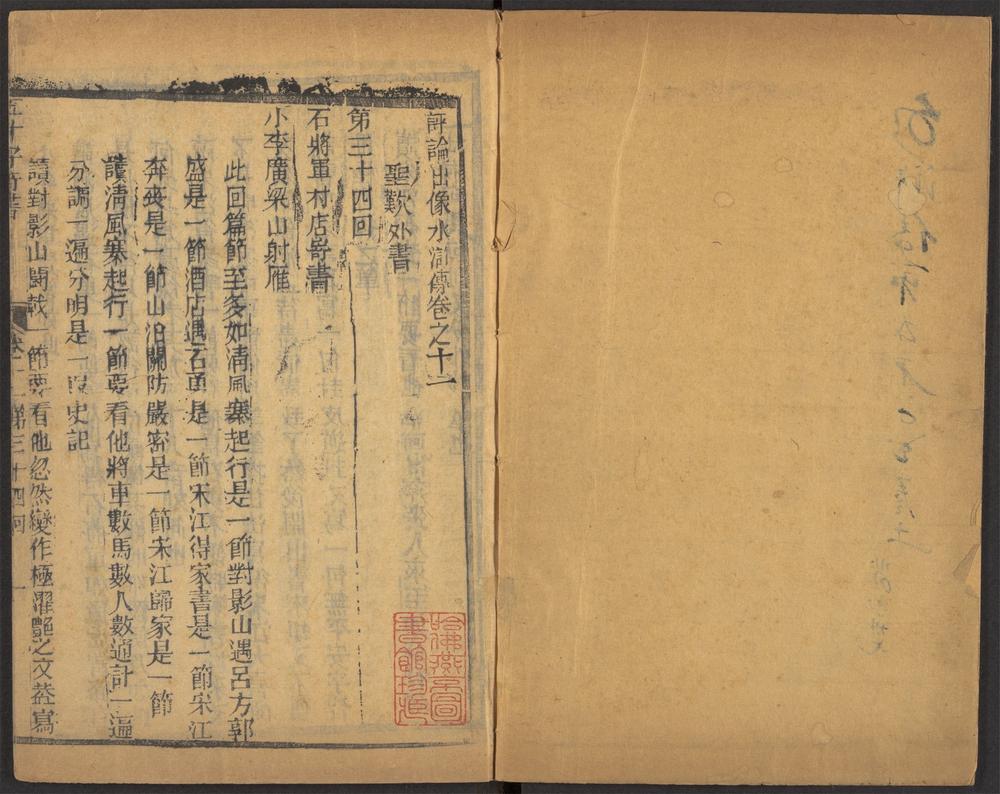 評論出像水滸傳卷之十二
聖歎外書
第三十四回
石將軍村店寄書
小李廣梁山射雁
此回篇節至多如淸風寨起行是一節對影山遇呂方郭
盛是一節酒店遇石勇是一節宋江得家書是一節宋江
奔喪是一節山泊關防嚴密是一節宋江歸家是一節
讀淸風寨起行一節要看他將車數馬數人數通計一遍
分調一遍分明是一段史記
讀對影山鬭戟一節要看他忽然變作極濯艷之文蓋寫
五十子奇書
第三十四回
一
哈佛燕京圖
書館珍藏